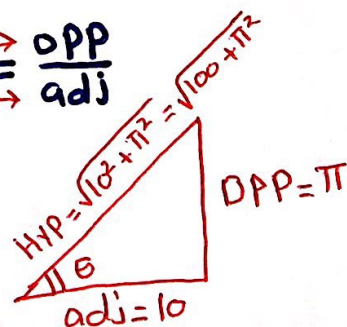 → OPP
= ———
→ adj
HYP = √10² + π² = √100 + π²
OPP = π
θ
adj = 10